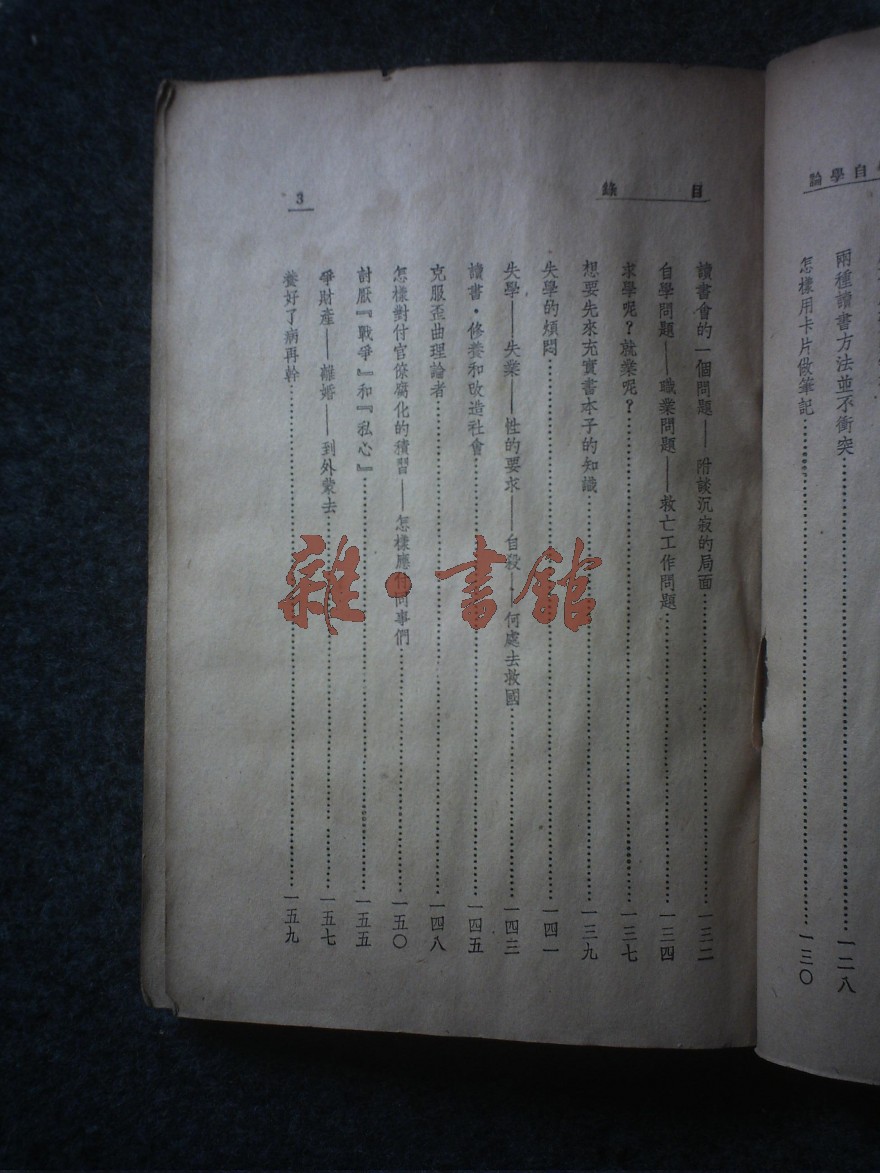 自學論
兩種讀書方法並不衝突……一二八
怎樣用卡片做筆記……一三〇
目錄
3
讀書會的一個問題——附談沉寂的局面……一三二
自學問題——職業問題——救亡工作問題……一三四
求學呢？就業呢？……一三七
想要先來充實書本子的知識……一三九
失學的煩悶……一四一
失學——失業——性的要求——自殺——何處去救國……一四三
讀書·修養和改造社會……一四五
克服歪曲理論者……一四八
怎樣對付官僚腐化的積習——怎樣應付同事們……一五〇
討厭『戰爭』和『私心』……一五五
爭財產——離婚——到外蒙去……一五七
養好了病再幹……一五九
雜·書館